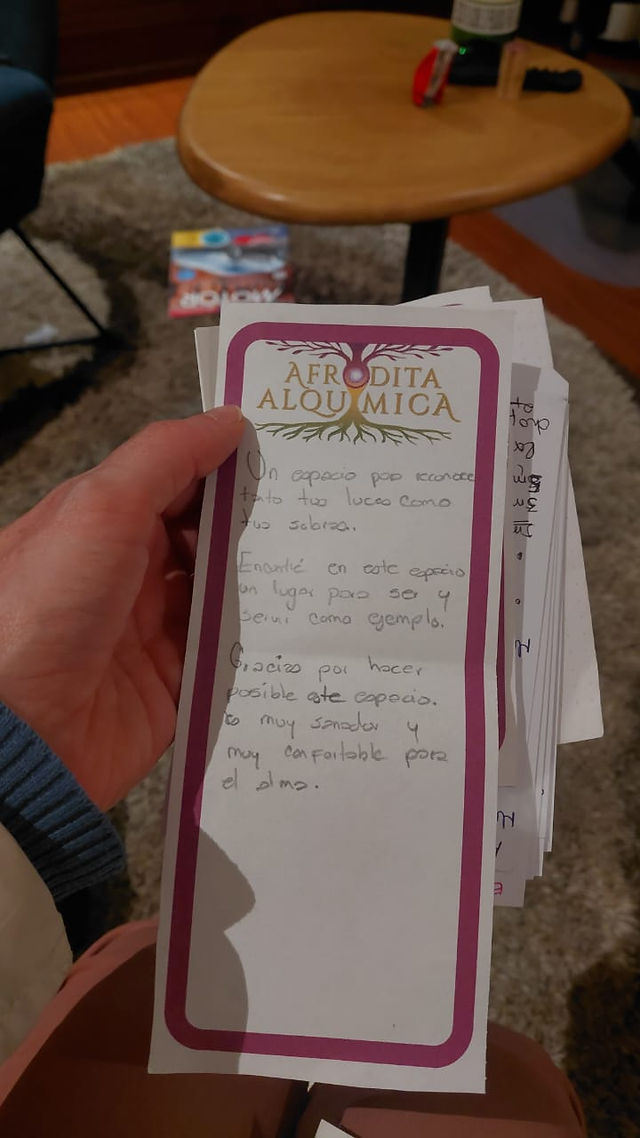 AFRODITA
ALQUIMICA
Un espacio para reconocer
tanto tus luces como
tus sobras.
Encontré en este espacio
un lugar para ser y
servir como ejemplo.
Gracias por hacer
posible este espacio.
es muy sanador y
muy confortable para
el alma.
MOTOR